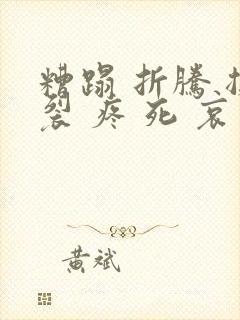 糟蹋 折騰
裂 疼 死 哀
黄斌